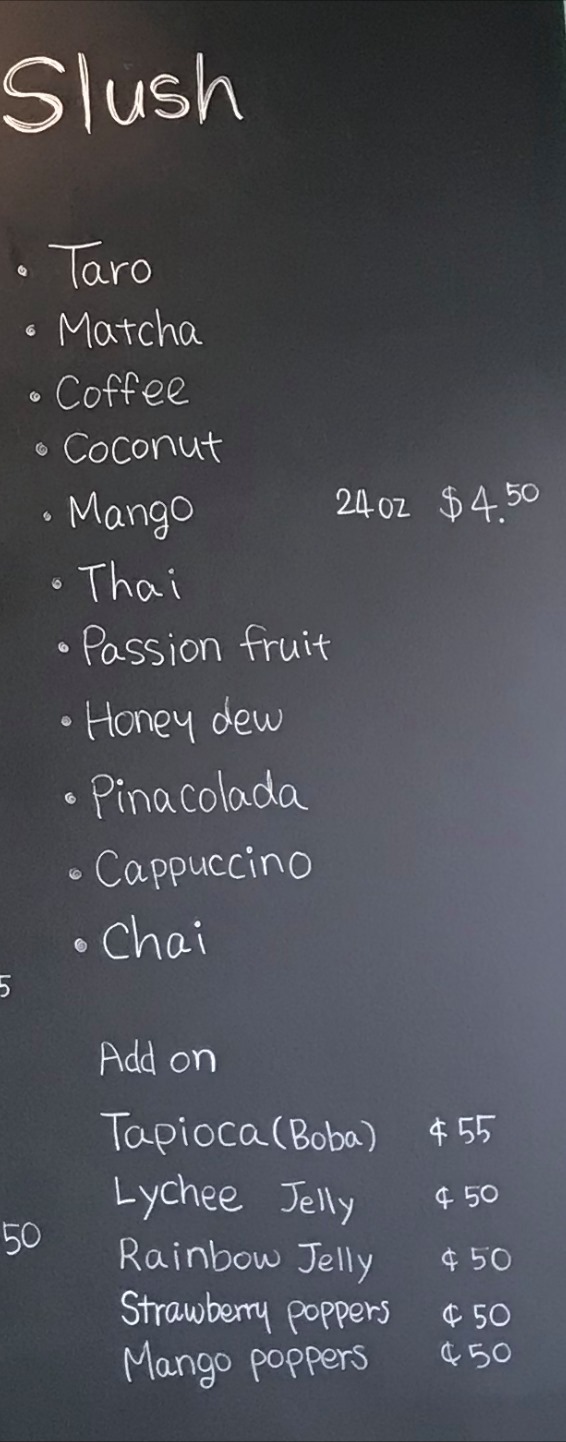 Slush
• Taro
• Matcha
• Coffee
• Coconut
• Mango 24oz $4.50
• Thai
• Passion fruit
• Honey dew
• Pinacolada
• Cappuccino
• Chai
5
Add on
Tapioca (Boba) ¢55
Lychee Jelly ¢50
50
Rainbow Jelly ¢50
Strawberry poppers ¢50
Mango poppers ¢50